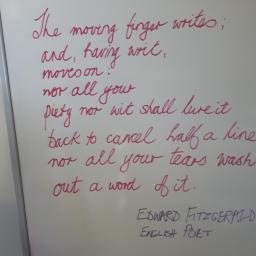 The moving finger writes;
and, having writ,
moves on:
nor all your
Piety nor wit shall lure it
back to cancel half a line
nor all your tears wash
out a word of it.
EDWARD FITZGERALD
ENGLISH POET